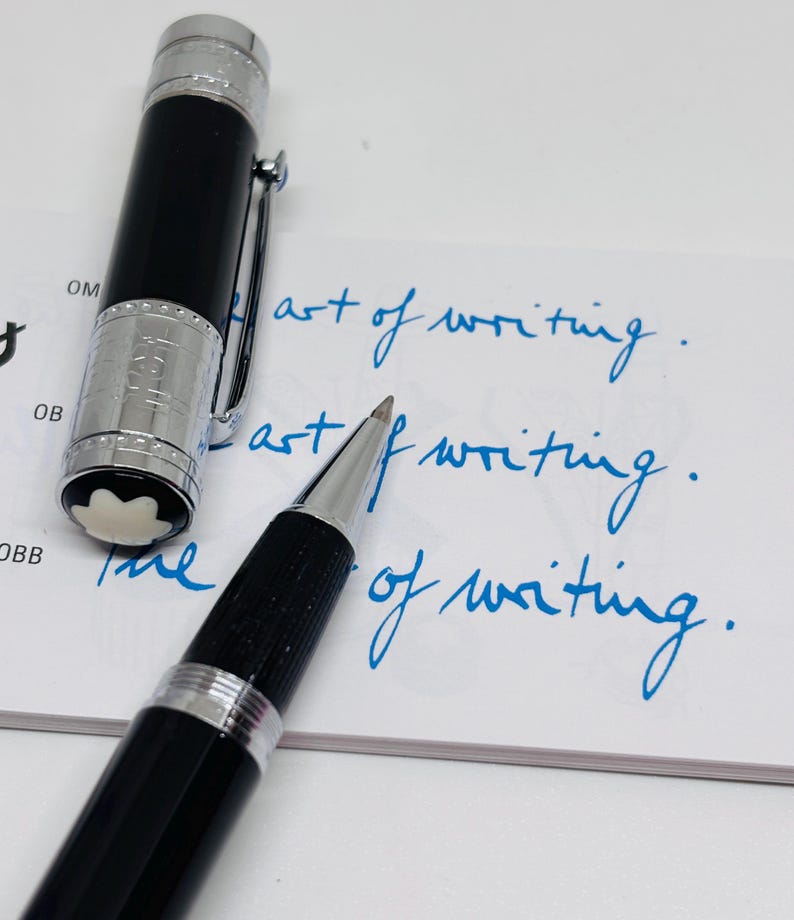 OM art of writing.
OB art of writing.
OBB The of writing.